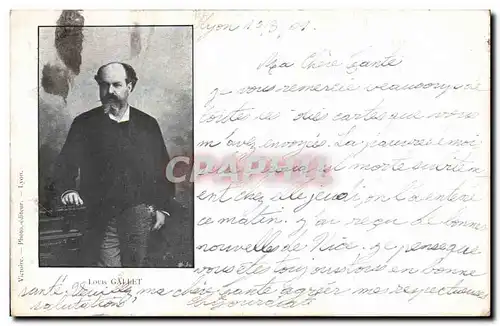 Lyon 12/3/01.
Ma Chère Tante
je vous remercie beaucoup de
toutes ces jolies cartes que vous
m'avez envoyées. La pauvre
est morte
ent chez elle jeudi, on l'a enterré
ce matin. j'ai reçu de bonnes
nouvelles de Nice. je pense que
vous êtes toujours tous en bonne
santé. Veuillez ma chère tante agréer mes respectueuses
salutations,
CARTOPHILES
Louis GALLET
Photo-éditeur. — Lyon.